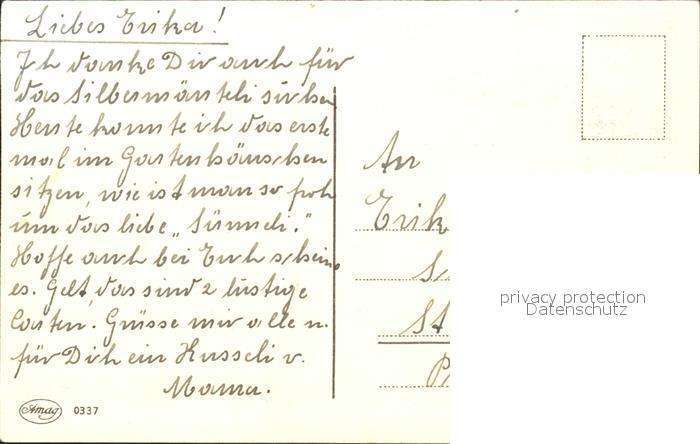 Liebes Erika!
Ich danke Dir auch für
das Silbermänteli suchen
Heute konnte ich das erste
mal im Gartenhäuschen
sitzen, wie ist man so froh
um das liebe „Sünneli."
Hoffe auch bei Euch scheine
es. Gelt, das sind 2 lustige
Carten. Grüsse mir alle u.
für Dich ein Kusseli v.
Mama.
An
Erik
St
P
privacy protection
Datenschutz
Amag 0337